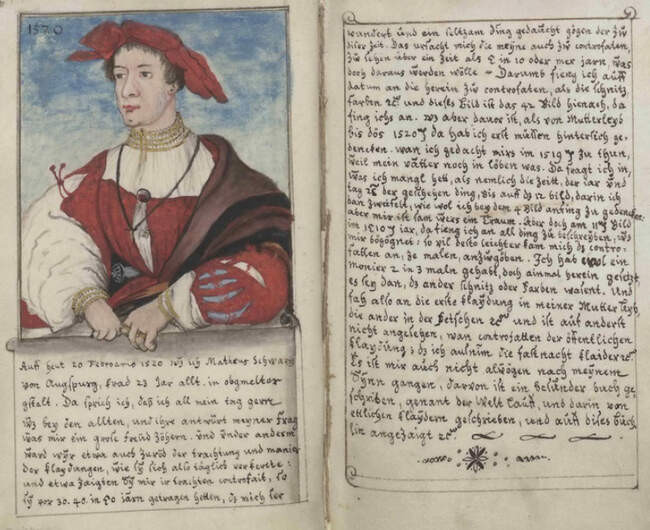 1520
Auff heut 20 Februario 1520 ich Matheus Schwarz
von Augspurg, 23 Jar allt. in obgmelter
gstalt. Da sprich ich, das ich all mein tag gern
was bey den allten, und ihre antwurt meyner frag
was mir ein grose freud zöheren. und under anderm
ward wür etwa auch zured der trachtung und manier
der klaydungen, wie sy sich also täglich verkerte:
und etwa zaigten sy mir ir trachten controfait, so
sy vor 30. 40. in 50 jarn getragen hetten, das mich ser
wundert und ein seltzam ding gedaucht gögen der zü
diser Zeit. Das ursacht mich die meyne auch zü controfaten,
zü sehen über ein Zeit als 5 in 10 oder mer jarn, was
doch daraus werden wölle = Darumb fieng ich auff
datum an die herein zü controfaten, als die schnitz,
farben und dises Bild ist das 42 Bild hienach, da
fing ichs an. was aber davor ist, als von Mutterleyb
bis dös 1520 da hab ich erst müssen hintersich ge-
dencken. wan ich gedacht mirs im 1519 zu thun,
weil mein vatter noch in löben was. Da fragt ich in,
was ich mangl hett, als nemlich die Zeitt, der iar und
tag der geschehen ding, bis auff das 12 bild, darin ich
dan zweifelt, wie wol ich bey dem 4 Bild anfing zu gedencken:
aber mir ist sam wers ein Traum. Aber doch am 11 Bild
im 1510 jar, da fieng ich an all ding zü beschreyben, was
mir bögögnet: so vil desto leichter kam mich das contro-
fatten an, ze malen, anzugöben. Ich hab wol ein
monier 2 in 3 maln gehabt, doch ainmal herein gesetzt,
es sey dan, das ander schnitz oder Farben warent. Und
fach also an die erste klaydung in meiner Mutter leyb,
die ander in der Fetschen und ist auf anderst
nicht angesehen, wan controfatten der öffentlichen
klaydung; das ich aufnim die fastnacht klaider
Es ist mir auch nicht allwögen nach meynem
Synn gangen, darvon ist ein besünder buch ge-
schriben, genant der Welt Lauff, und darin von
ettlichen klaydern geschrieben, und auch dises büch
lin angezaigt